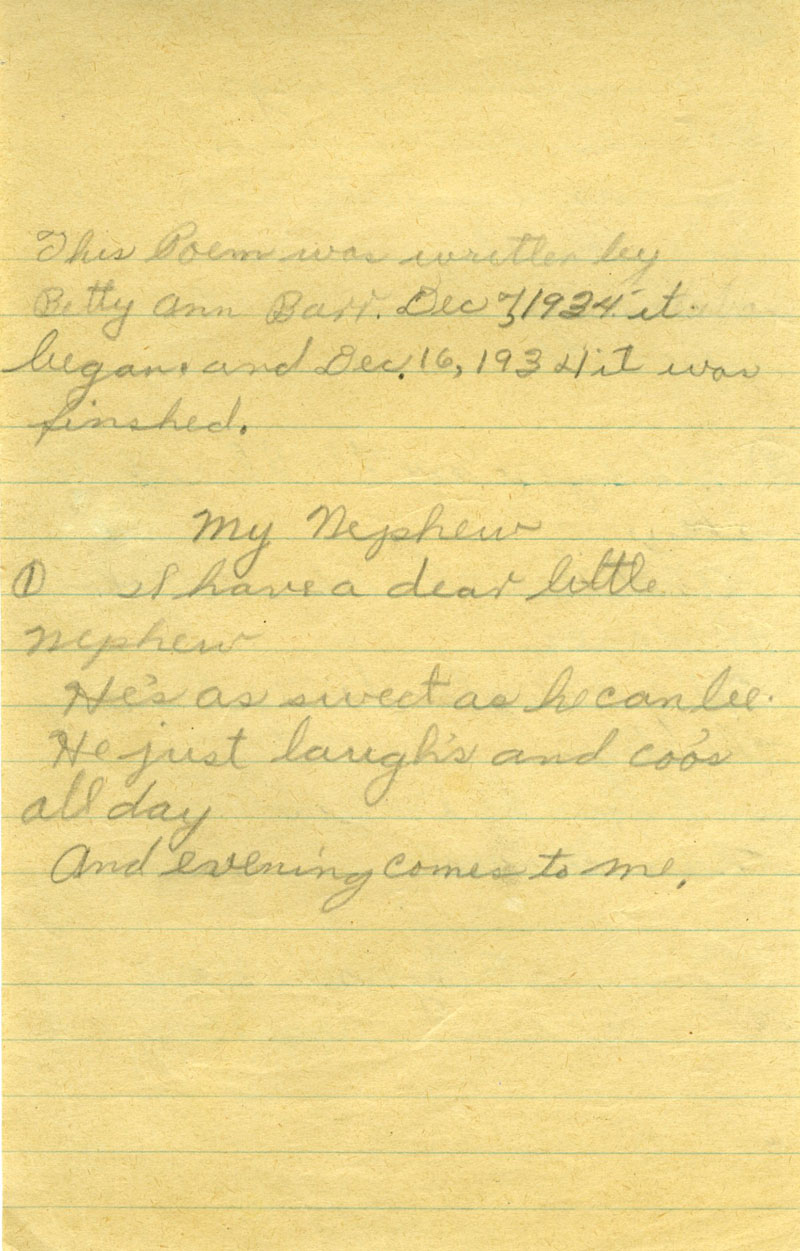 This Poem was written by
Betty Ann Barr. Dec 7, 1934 it
began. and Dec. 16, 1934 it was
finshed.
My Nephew
① I have a dear little
Nephew
He's as sweet as he can be.
He just laugh's and coo's
all day
And evening comes to me.